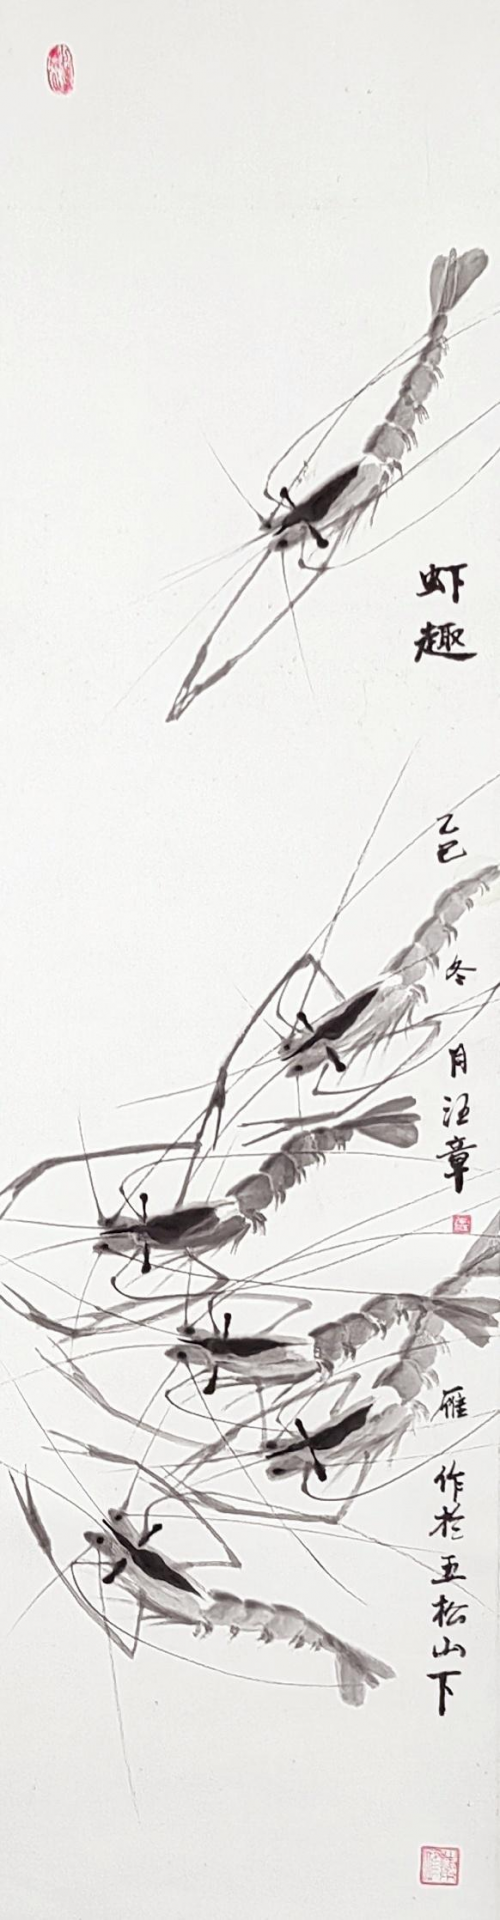 虾趣
乙巳冬月汪章雁作於五松山下